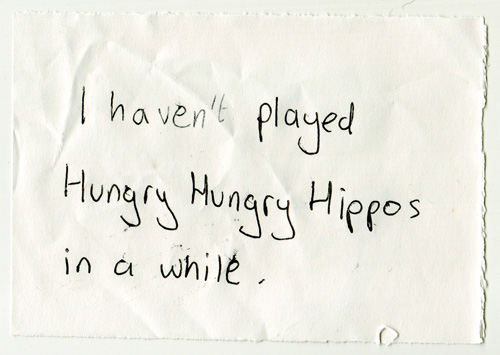 I haven't played
Hungry Hungry Hippos
in a while.